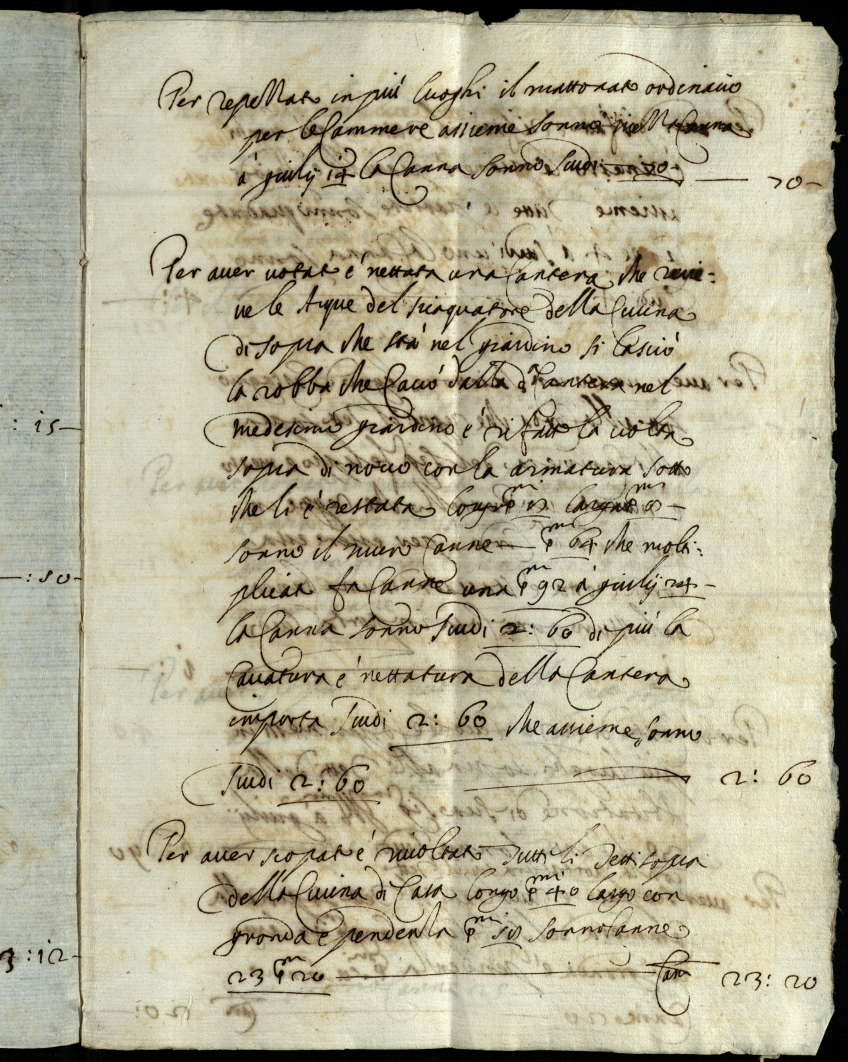 Per repellat in più luoghi il mattonat ordinario
per le Cammere assieme sonno Canna
à giulij 14 la Canna sonno Scudi 70 — 70 -
Per aver votat è nettata una Cantera che rice=
ve le Aque del sciaquatore della Cucina
di sopra che stà nel giardino si lasciò
la robba che Cavò dalla d.ª Cantera nel
medesimo giardino è rifatto la volta
sopra di novo con la armatura sotto
che li è restata longa pmi larga pmi 8 -
sonno il muro Canne — pmi 64 che moli=
plicata fa Canne una pmi 92 à giulij 24 -
la Canna sonno Scudi 2: 60 di più la
Cavatura è nettatura della Cantera
importa Scudi 2: 60 che assieme sonno
Scudi 2: 60 — 2: 60
Per aver scopat è rivoltat tutti li tetti sopra
della Cucina di Casa longo pmi 40 largo con
gronda è pendenza pmi sonno Canne
23 pmi 20 — Can 23: 20
: 15 -
: 50 -
3 : 12 -